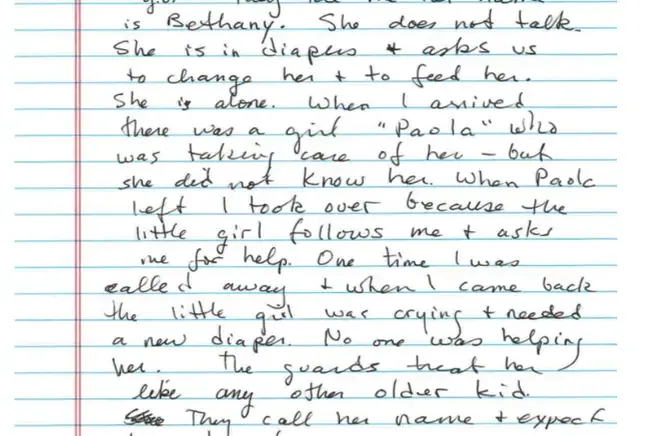 is Bethany. She does not talk.
She is in diapers + asks us
to change her + to feed her.
She is alone. When I arrived
there was a girl "Paola" who
was taking care of her – but
she did not know her. When Paola
left I took over because the
little girl follows me + asks
me for help. One time I was
called away + when I came back
the little girl was crying + needed
a new diaper. No one was helping
her. The guards treat her
like any other older kid.
They call her name + expect